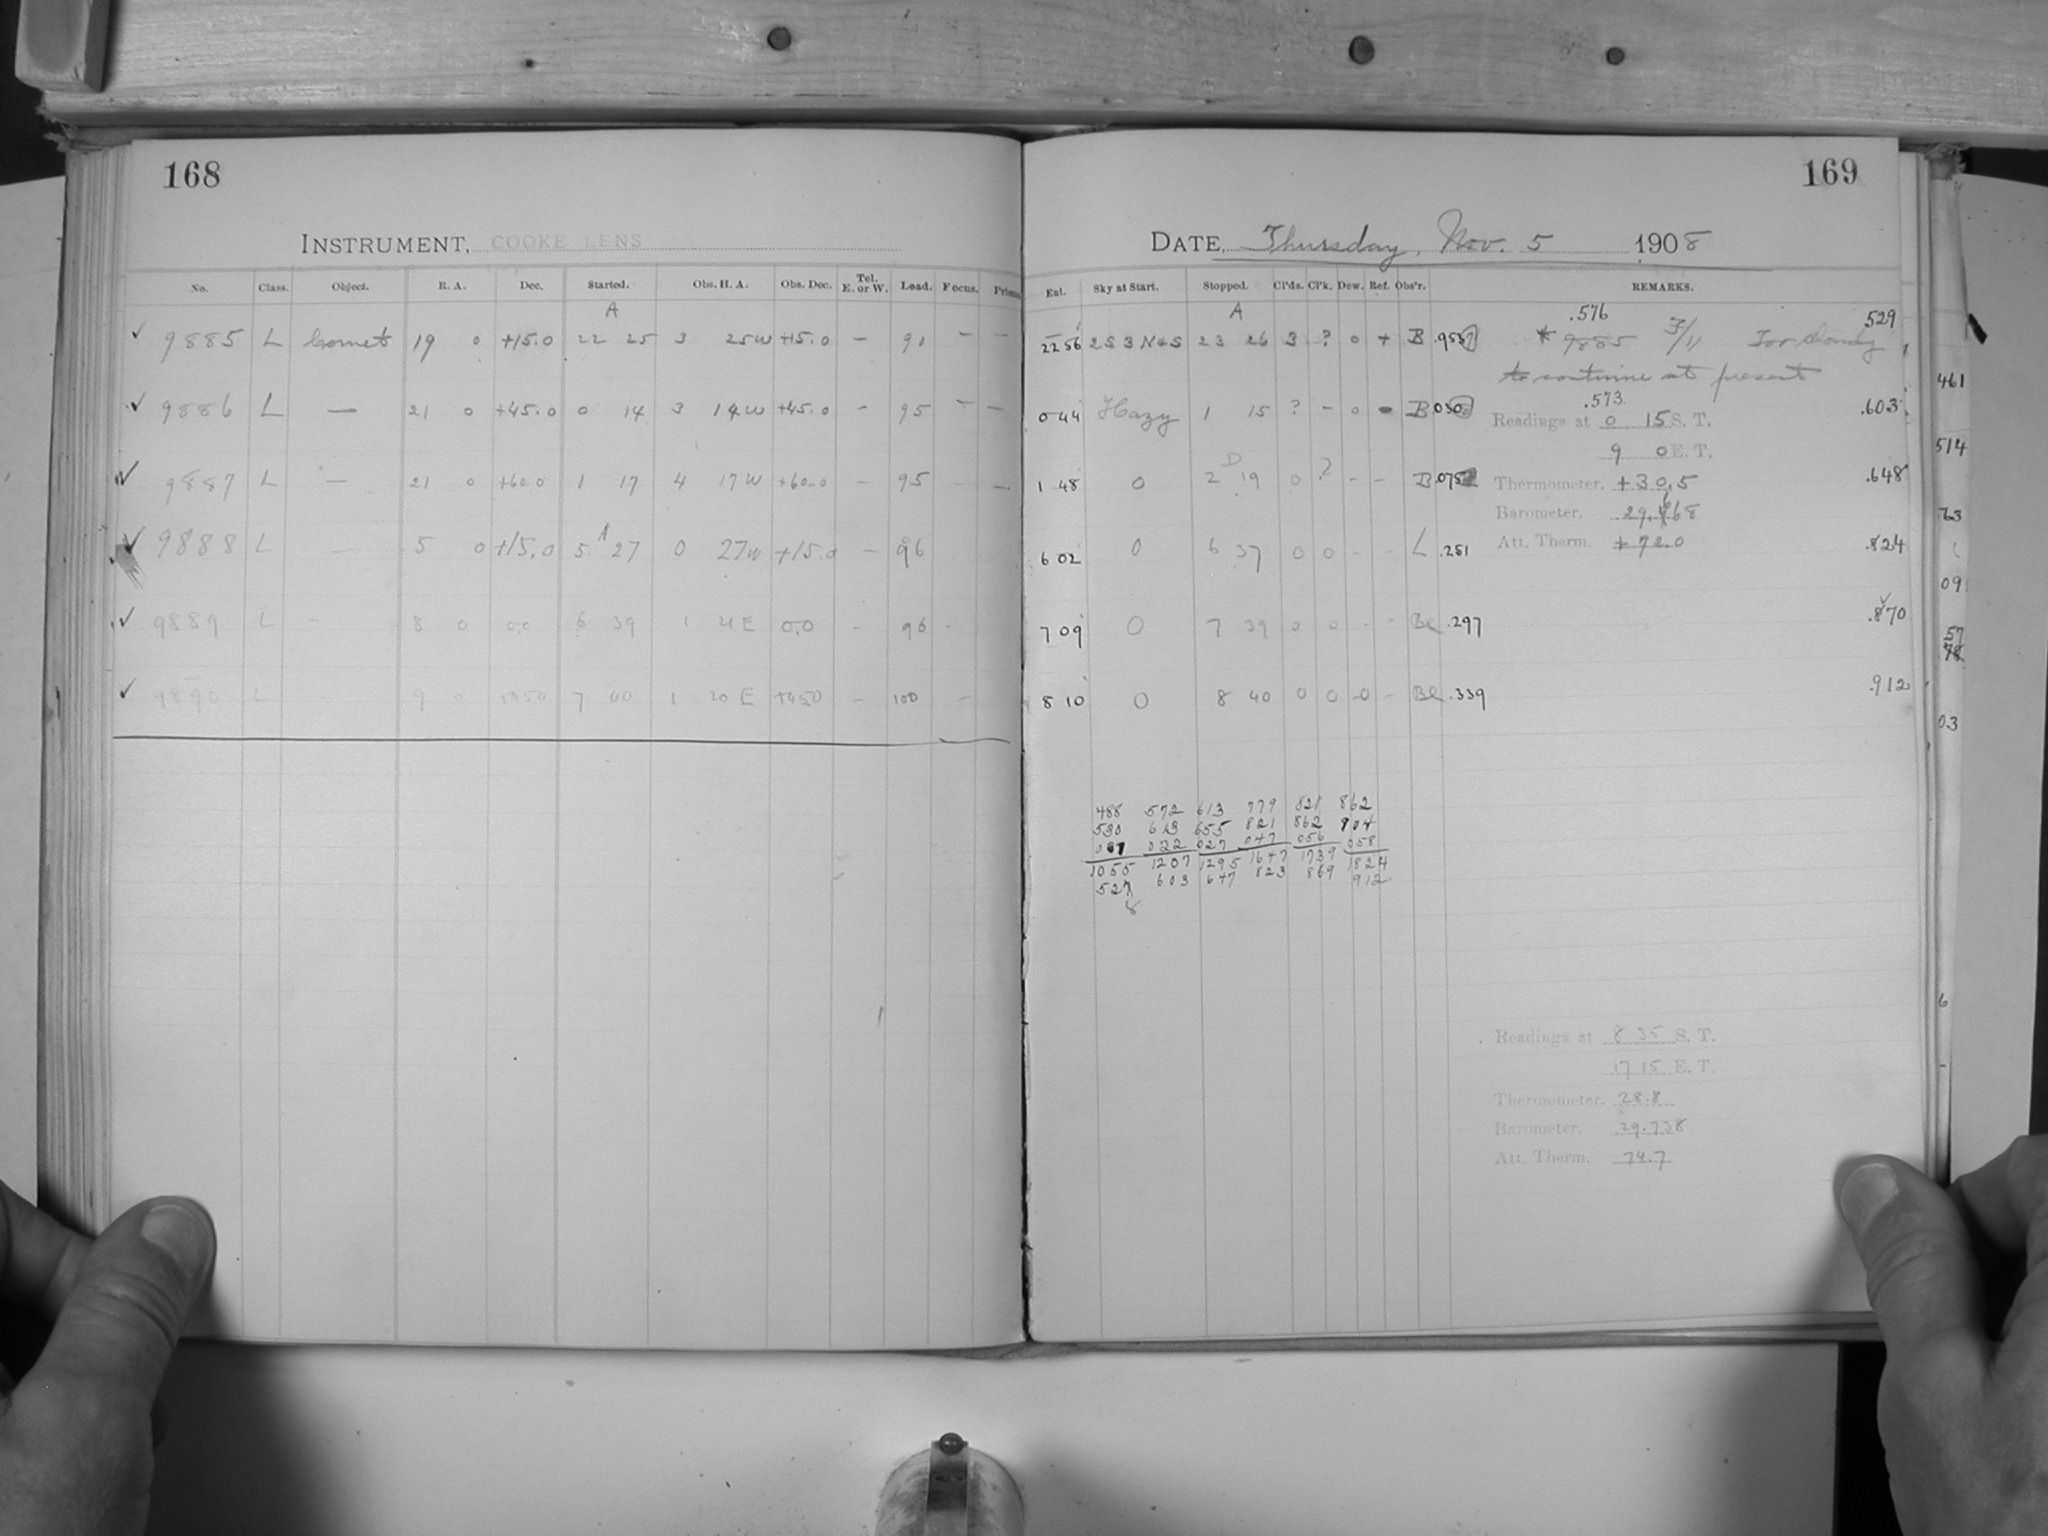 168
169
INSTRUMENT, COOKE LENS
DATE, Thursday, Nov. 5 1908
No. Class. Object. R. A. Dec. Started. Obs. H. A. Obs. Dec. Tel. E. or W. Load. Focus. Prism
Ext. Sky at Start. Stopped. Cl'ds. Cl'k. Dew. Ref. Obs'r. REMARKS.
A A .576 529
✓ 9885 L Comet 19 0 +15.0 22 25 3 25W +15.0 — 91 — — 22 56 2S 3 N+S 23 26 3 ? 0 + B .9537 * 9885 3/11 Too cloudy
to continue at present
.573
✓ 9886 L — 21 0 +45.0 0 14 3 14W +45.0 — 95 — — 0 44 Hazy 1 15 ? — 0 B .030 .603
Readings at 0 15 S. T.
9 0 E. T.
D
✓ 9887 L — 21 0 +60.0 1 17 4 17W +60.0 — 95 — — 1 48 0 2 19 0 ? — — B .075 Thermometer. +30.5 .648
Barometer. 29.668
A
✓ 9888 L — 5 0 +15.0 5 27 0 27W +15.0 — 96 6 02 0 6 37 0 0 — — L .251 Att. Therm. +72.0 .824
✓ 9889 L — 8 0 0.0 6 39 1 21E 0.0 — 96 — 7 09 0 7 39 0 0 — — Be .297 .870
✓ 9890 L — 9 0 +45.0 7 40 1 20E +45.0 — 100 — 8 10 0 8 40 0 0 0 — Be .339 .912
488 572 613 779 821 862
530 613 655 821 862 904
022 027 047 056 058
1055 1207 1295 1647 1739 1824
527 603 647 823 869 912
8
Readings at 8 35 S. T.
17 15 E. T.
Thermometer. 28.8
Barometer. 29.738
Att. Therm. 74.7
461
514
09
57
78
03
6